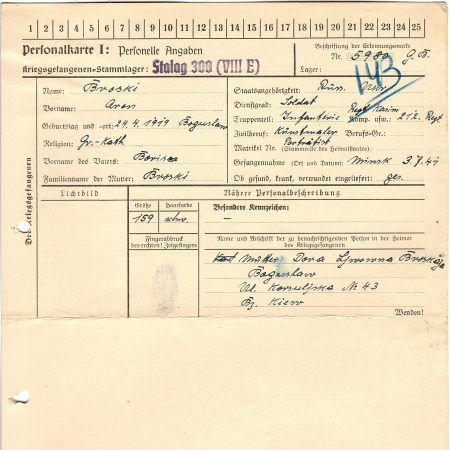 1 2 3 4 5 6 7 8 9 10 11 12 13 14 15 16 17 18 19 20 21 22 23 24 25
Personalkarte I: Personelle Angaben
Kriegsgefangenen-Stammlager: Stalag 308 (VIII E)
Beschriftung der Erkennungsmarke
Nr. 5980 G.B.
Lager:
143
Des Kriegsgefangenen
Name: Broski
Vorname: Aron
Geburtstag und -ort: 24.4.1919 Boguslaw
Religion: Gr.-Kath
Vorname des Vaters: Boris
Familienname der Mutter: Broski
Staatsangehörigkeit: Russ.
Dienstgrad: Soldat
Truppenteil: Infanterie Komp. usw.: 212. Regt
Zivilberuf: Kunstmaler Berufs-Gr.:
Porträtist
Matrikel Nr. (Stammrolle des Heimatstaates):
Gefangennahme (Ort und Datum): Minsk 3.7.41
Ob gesund, krank, verwundet eingeliefert: ges.
Lichtbild
Nähere Personalbeschreibung
Größe Haarfarbe
159 schw.
Besondere Kennzeichen:
–
Fingerabdruck
des rechten! Zeigefingers
Name und Anschrift der zu benachrichtigenden Person in der Heimat
des Kriegsgefangenen
Mutter Dora Ljwowna Broskaja
Boguslaw
Ul. № 43
Bz. Kiew
Wenden!